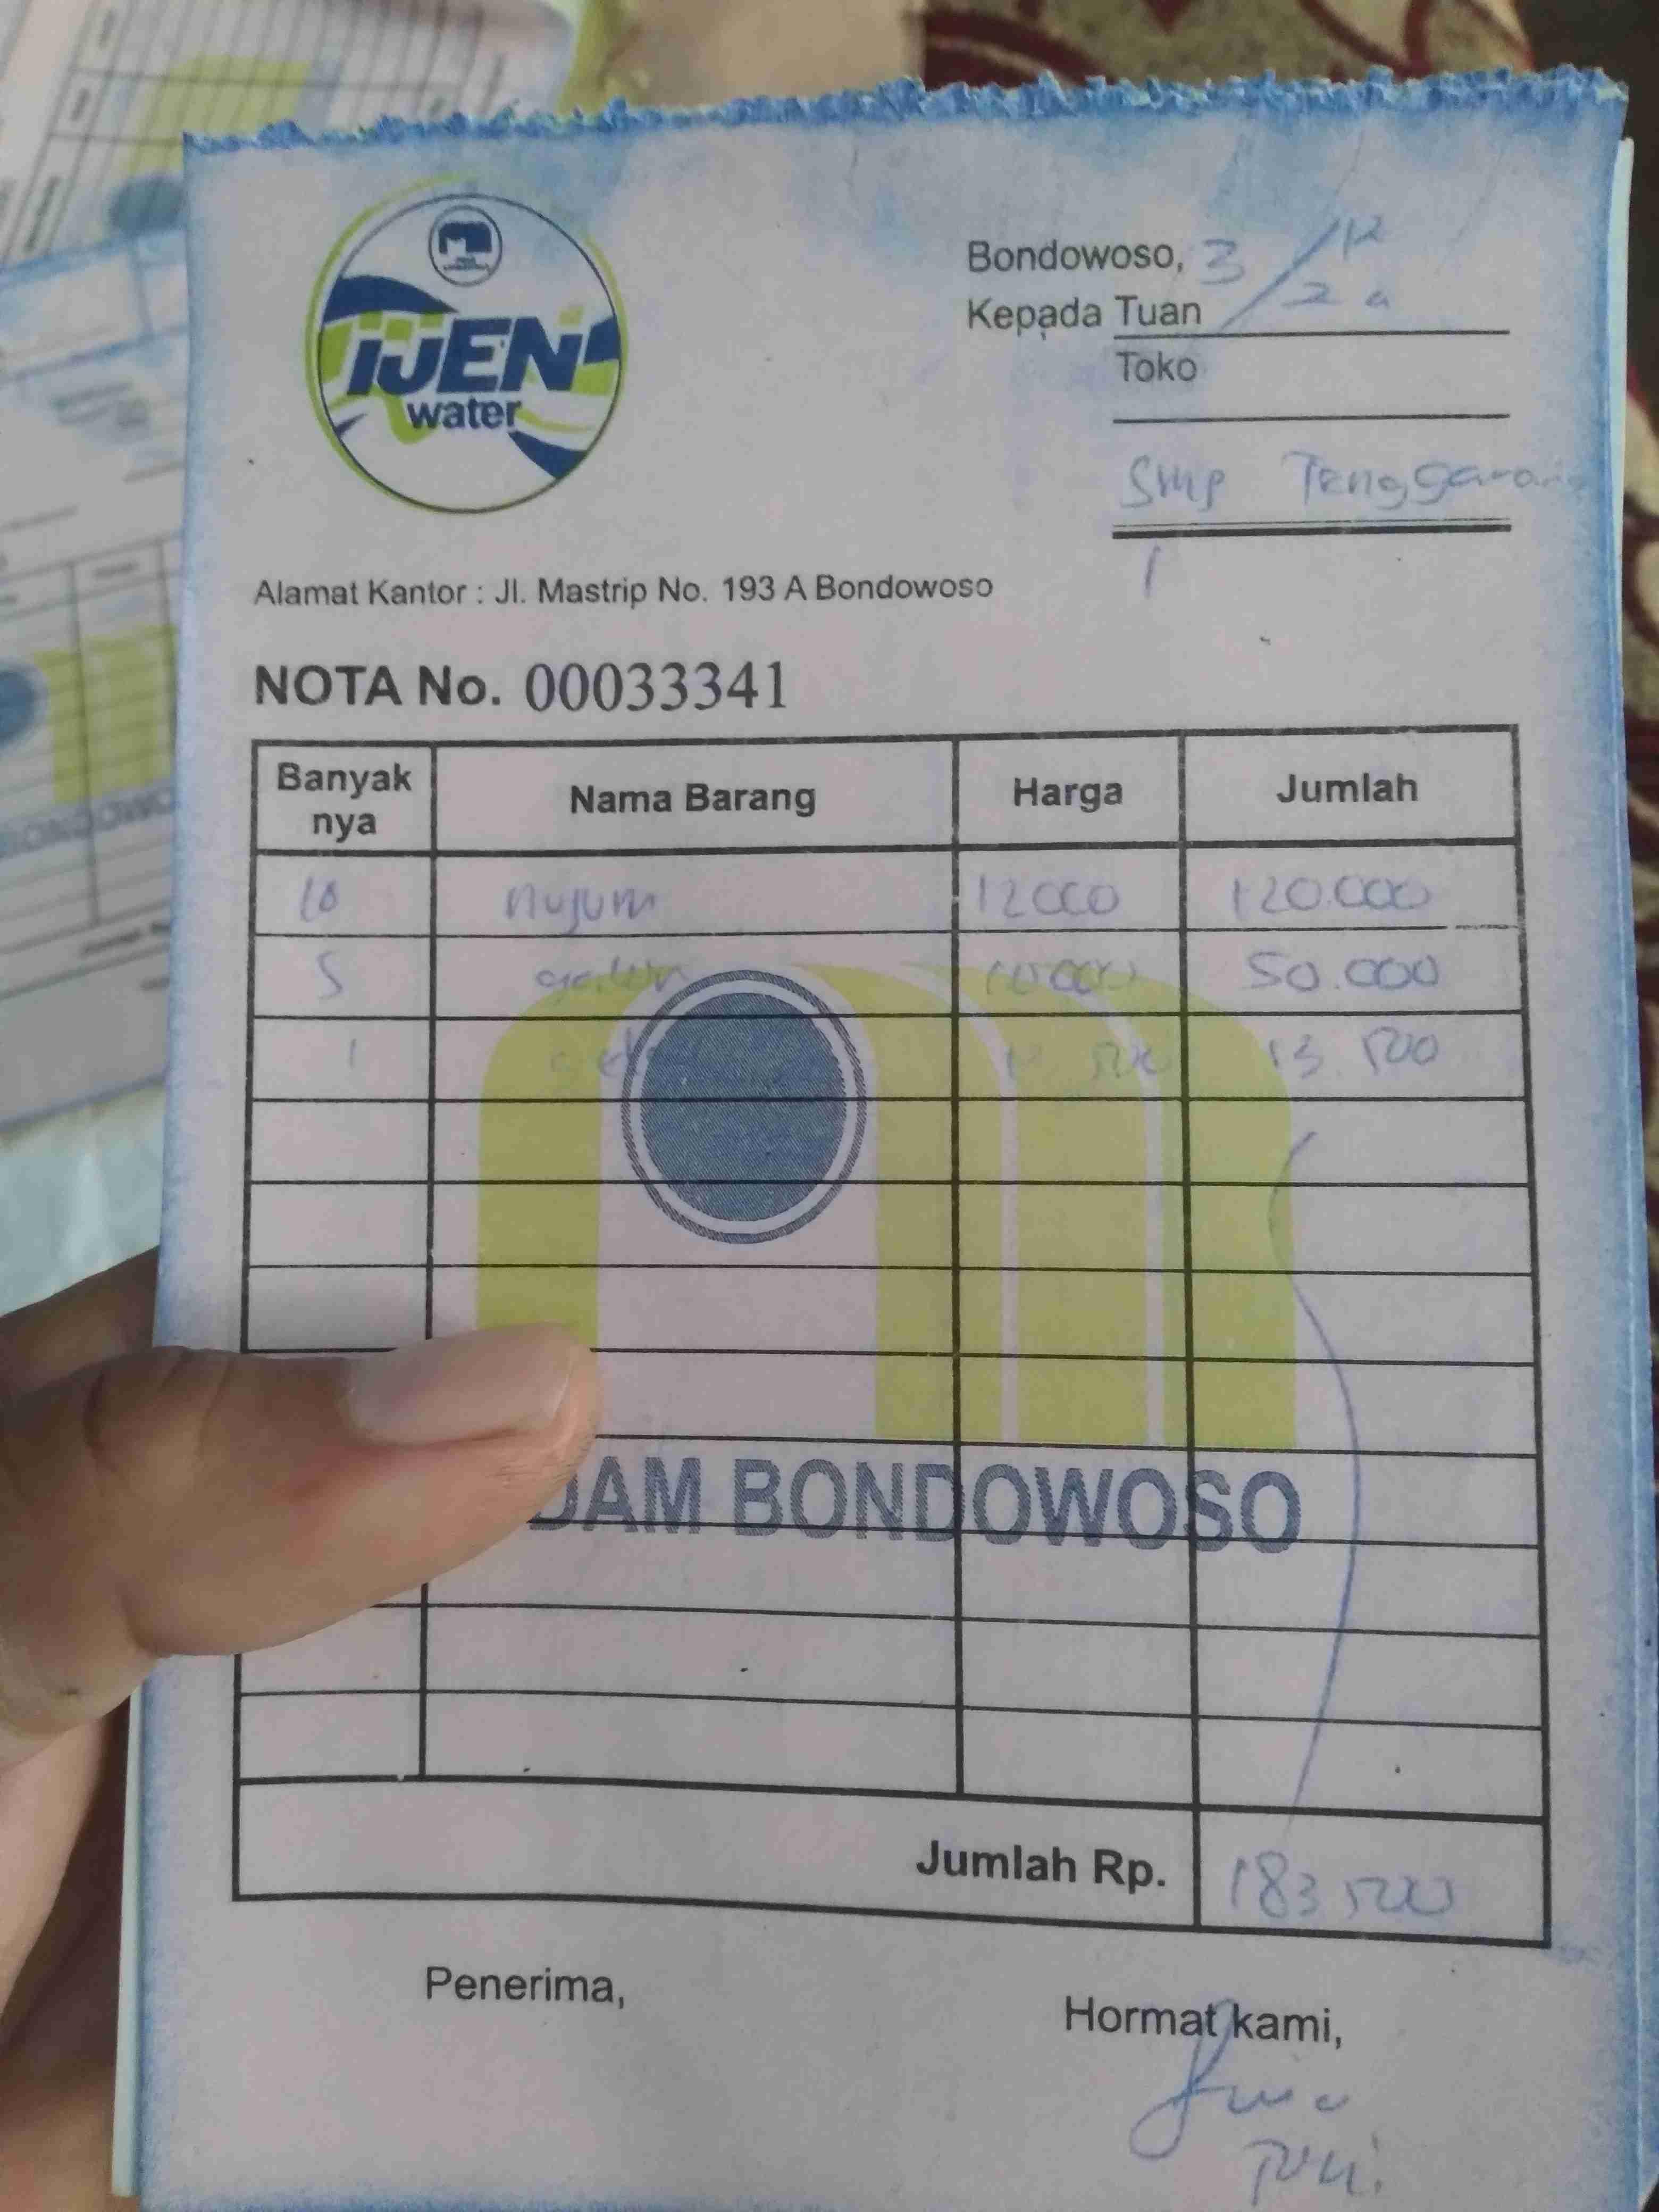 IJEN
water
Bondowoso, 3/12
Kepada Tuan
Toko
Smp Tenggarang
1
Alamat Kantor : Jl. Mastrip No. 193 A Bondowoso
NOTA No. 00033341
Banyak nya Nama Barang Harga Jumlah
10 12000 120.000
5 galon 10000 50.000
1 13.500
DAM BONDOWOSO
Jumlah Rp. 183500
Penerima,
Hormat kami,